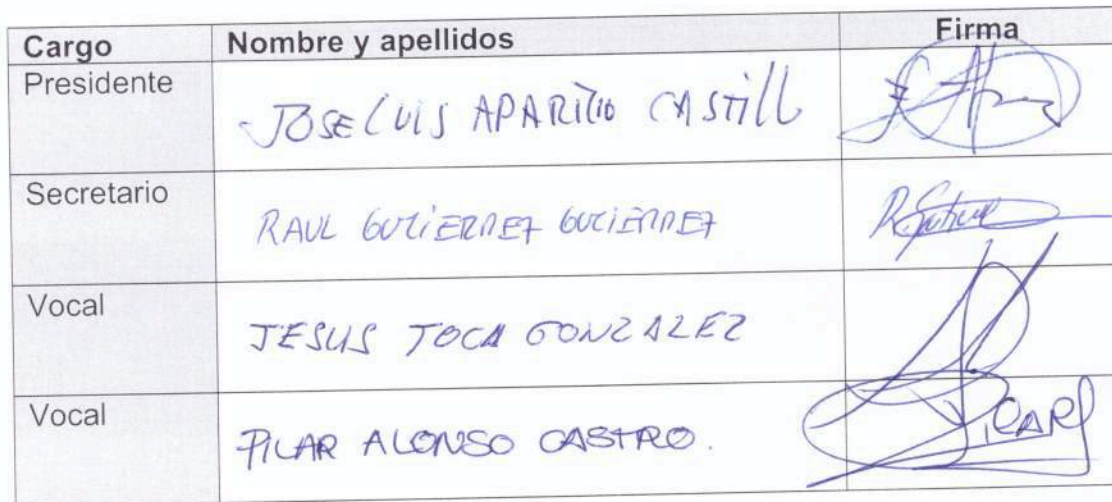 Cargo Nombre y apellidos Firma
Presidente JOSE LUIS APARICIO CASTILL
Secretario RAUL GUTIERREZ GUTIERREZ
Vocal JESUS TOCA GONZALEZ
Vocal PILAR ALONSO CASTRO.